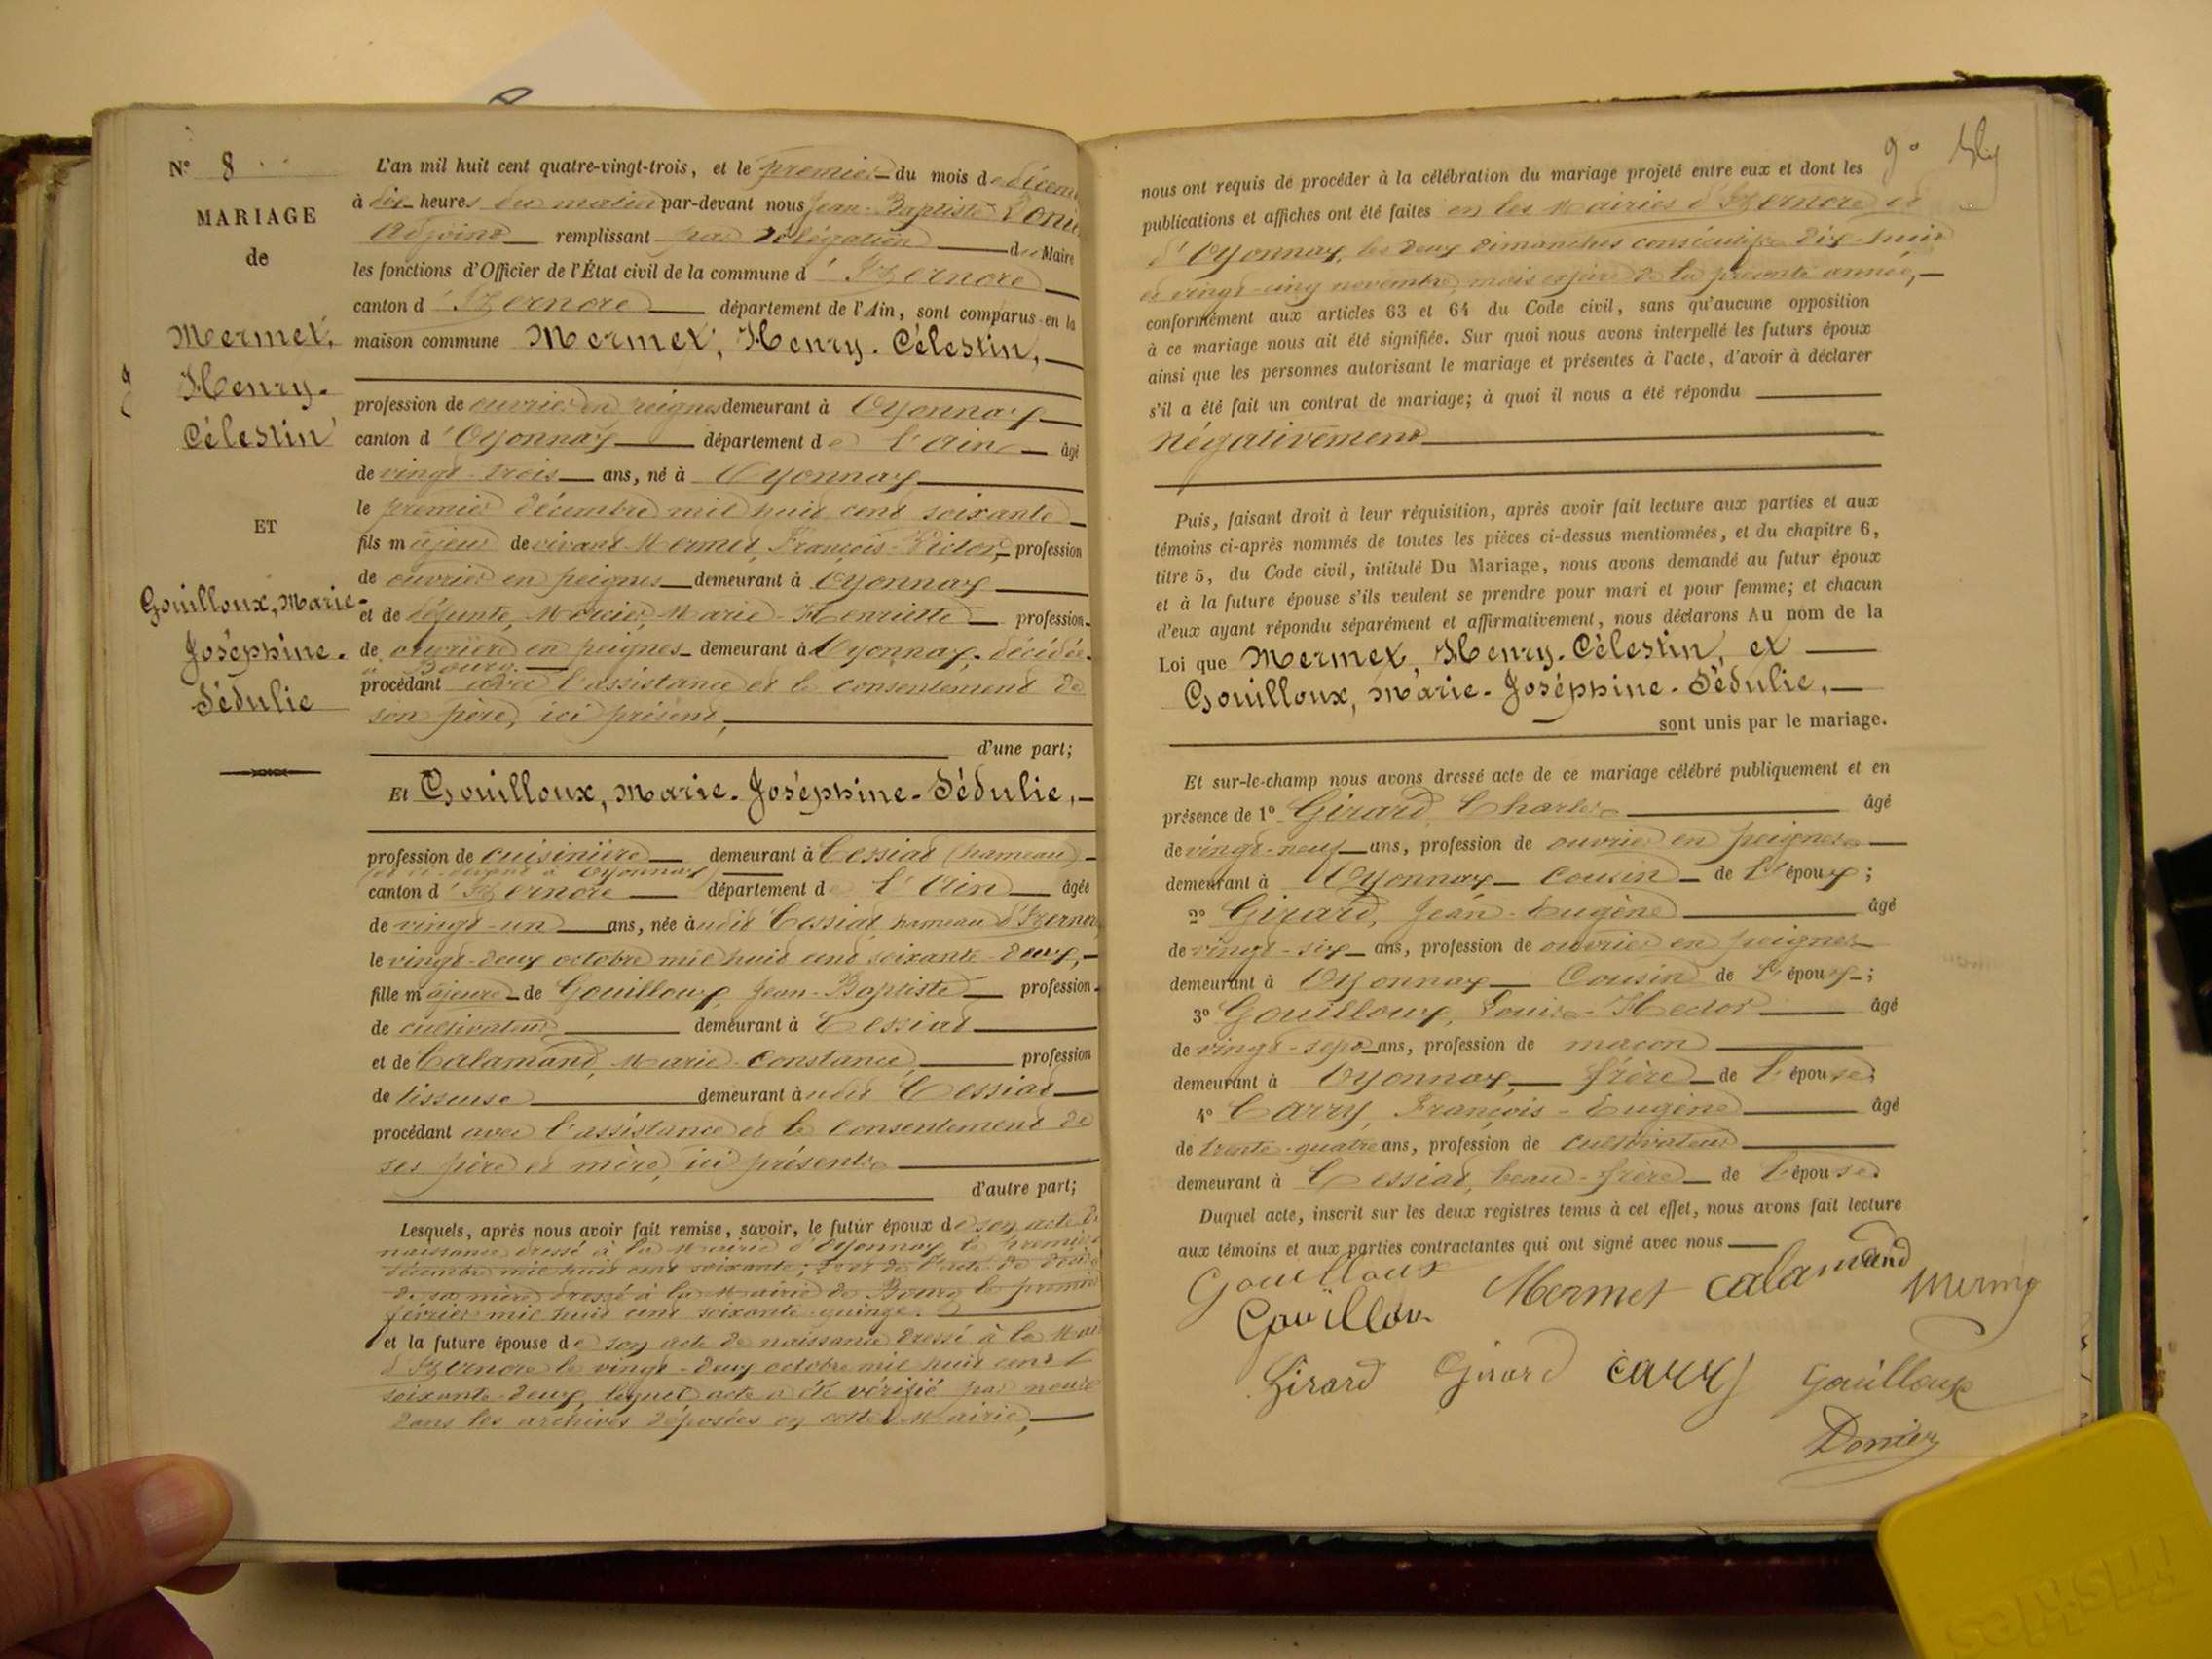 N° 8
MARIAGE
de
Mermet,
Henry-
Célestin
ET
Gouilloux, Marie-
Joséphine-
Sédulie
L'an mil huit cent quatre-vingt-trois, et le premier du mois de décem
à dix heures du matin par-devant nous Jean-Baptiste
Adjoint remplissant par délégation du Maire
les fonctions d'Officier de l'État civil de la commune d'Izernore
canton d'Izernore département de l'Ain, sont comparus en la
maison commune Mermet, Henry-Célestin,
profession de ouvrier en peignes demeurant à Oyonnax
canton d'Oyonnax département de l'Ain âgé
de vingt-trois ans, né à Oyonnax
le premier décembre mil huit cent soixante
fils majeur de vivant Mermet, François-Victor, profession
de ouvrier en peignes demeurant à Oyonnax
et de défunte Mercier, Marie-Henriette profession
de ouvrière en peignes demeurant à Oyonnax, décédée
à Bourg.
procédant avec l'assistance et le consentement de
son père, ici présent,
d'une part;
Et Gouilloux, Marie-Joséphine-Sédulie,
profession de cuisinière demeurant à Cessiat (hameau)
et ci-devant à Oyonnax
canton d'Izernore département de l'Ain âgée
de vingt-un ans, née audit Cessiat, hameau d'Izernore
le vingt-deux octobre mil huit cent soixante-deux,
fille majeure de Gouilloux, Jean-Baptiste profession
de cultivateur demeurant à Cessiat
et de Calamand, Marie-Constance, profession
de tisseuse demeurant audit Cessiat
procédant avec l'assistance et le consentement de
ses père et mère, ici présents
d'autre part;
Lesquels, après nous avoir fait remise, savoir, le futur époux de son acte de
naissance dressé à la Mairie d'Oyonnax le premier
décembre mil huit cent soixante; de l'acte de décès
de sa mère dressé à la Mairie de Bourg le premier
février mil huit cent soixante-quinze.
et la future épouse de son acte de naissance dressé à la Mai
d'Izernore le vingt-deux octobre mil huit cent
soixante-deux, lequel acte a été vérifié par nous
dans les archives déposées en cette Mairie,
9°
nous ont requis de procéder à la célébration du mariage projeté entre eux et dont les
publications et affiches ont été faites en les Mairies d'Izernore et
d'Oyonnax, les deux dimanches consécutifs dix-huit
et vingt-cinq novembre, mois expiré de la présente année,
conformément aux articles 63 et 64 du Code civil, sans qu'aucune opposition
à ce mariage nous ait été signifiée. Sur quoi nous avons interpellé les futurs époux
ainsi que les personnes autorisant le mariage et présentes à l'acte, d'avoir à déclarer
s'il a été fait un contrat de mariage; à quoi il nous a été répondu
négativement
Puis, faisant droit à leur réquisition, après avoir fait lecture aux parties et aux
témoins ci-après nommés de toutes les pièces ci-dessus mentionnées, et du chapitre 6,
titre 5, du Code civil, intitulé Du Mariage, nous avons demandé au futur époux
et à la future épouse s'ils veulent se prendre pour mari et pour femme; et chacun
d'eux ayant répondu séparément et affirmativement, nous déclarons Au nom de la
Loi que Mermet, Henry-Célestin, et
Gouilloux, Marie-Joséphine-Sédulie,
sont unis par le mariage.
Et sur-le-champ nous avons dressé acte de ce mariage célébré publiquement et en
présence de 1° Girard, Charles âgé
de vingt-neuf ans, profession de ouvrier en peignes
demeurant à Oyonnax cousin de l'époux;
2° Girard, Jean-Eugène âgé
de vingt-six ans, profession de ouvrier en peignes
demeurant à Oyonnax Cousin de l'époux;
3° Gouilloux, Louis-Hector âgé
de vingt-sept ans, profession de maçon
demeurant à Oyonnax frère de l'épouse;
4° Carry, François-Eugène âgé
de trente-quatre ans, profession de cultivateur
demeurant à Cessiat, beau-frère de l'épouse.
Duquel acte, inscrit sur les deux registres tenus à cet effet, nous avons fait lecture
aux témoins et aux parties contractantes qui ont signé avec nous
Gouilloux Mermet Calamand Mermet
Gouillou
Girard Girard Carry Gouilloux